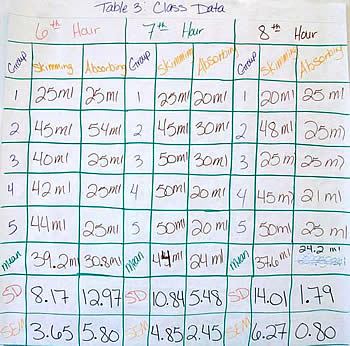 Table 3: Class Data
6th Hour 7th Hour 8th Hour
Group Skimming Absorbing Group Skimming Absorbing Group Skimming Absorbing
1 25ml 25ml 1 25ml 20ml 1 20ml 25 ml
2 45ml 54ml 2 45ml 30ml 2 48ml 25ml
3 40ml 25ml 3 50ml 30ml 3 25ml 25ml
4 42ml 25ml 4 50ml 20ml 4 45ml 21ml
5 44ml 25ml 5 50ml 20ml 5 50ml 25ml
Mean 39.2ml 30.8ml Mean 44ml 24ml Mean 37.6ml 24.2 ml
SD 8.17 12.97 SD 10.84 5.48 SD 14.01 1.79
SEM 3.65 5.80 SEM 4.85 2.45 SEM 6.27 0.80